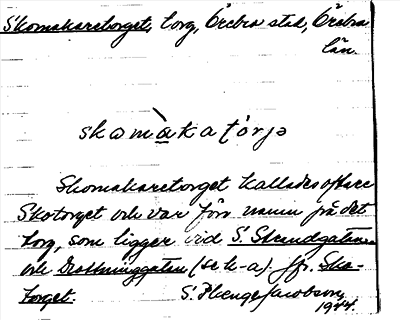 Skomakaretorget, torg, Örebro stad, Örebro
län.
skomàkatórjə
Skomakaretorget kallades oftare
Skotorget och var förr namn på det
torg, som ligger vid S. Strandgatan
och Drottninggatan (se k-a) jfr. Sko-
torget.
S.